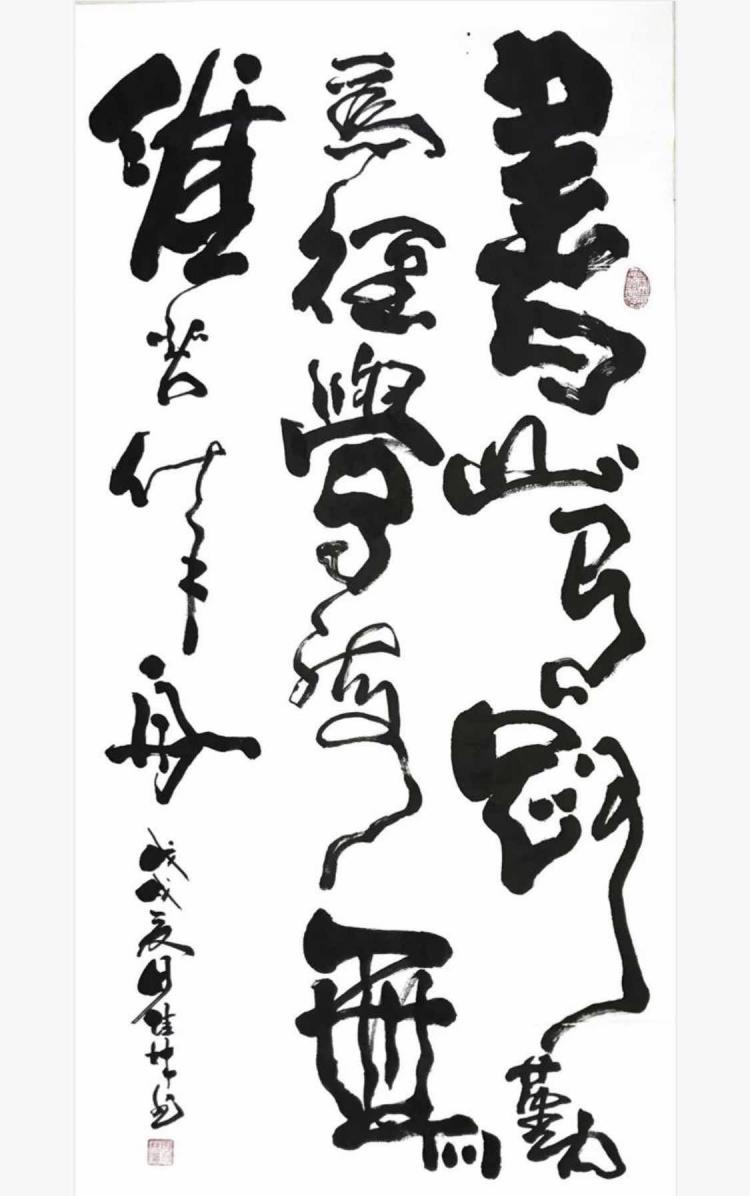 書山有路勤
為徑學海無
涯苦作舟
戊戌夏日